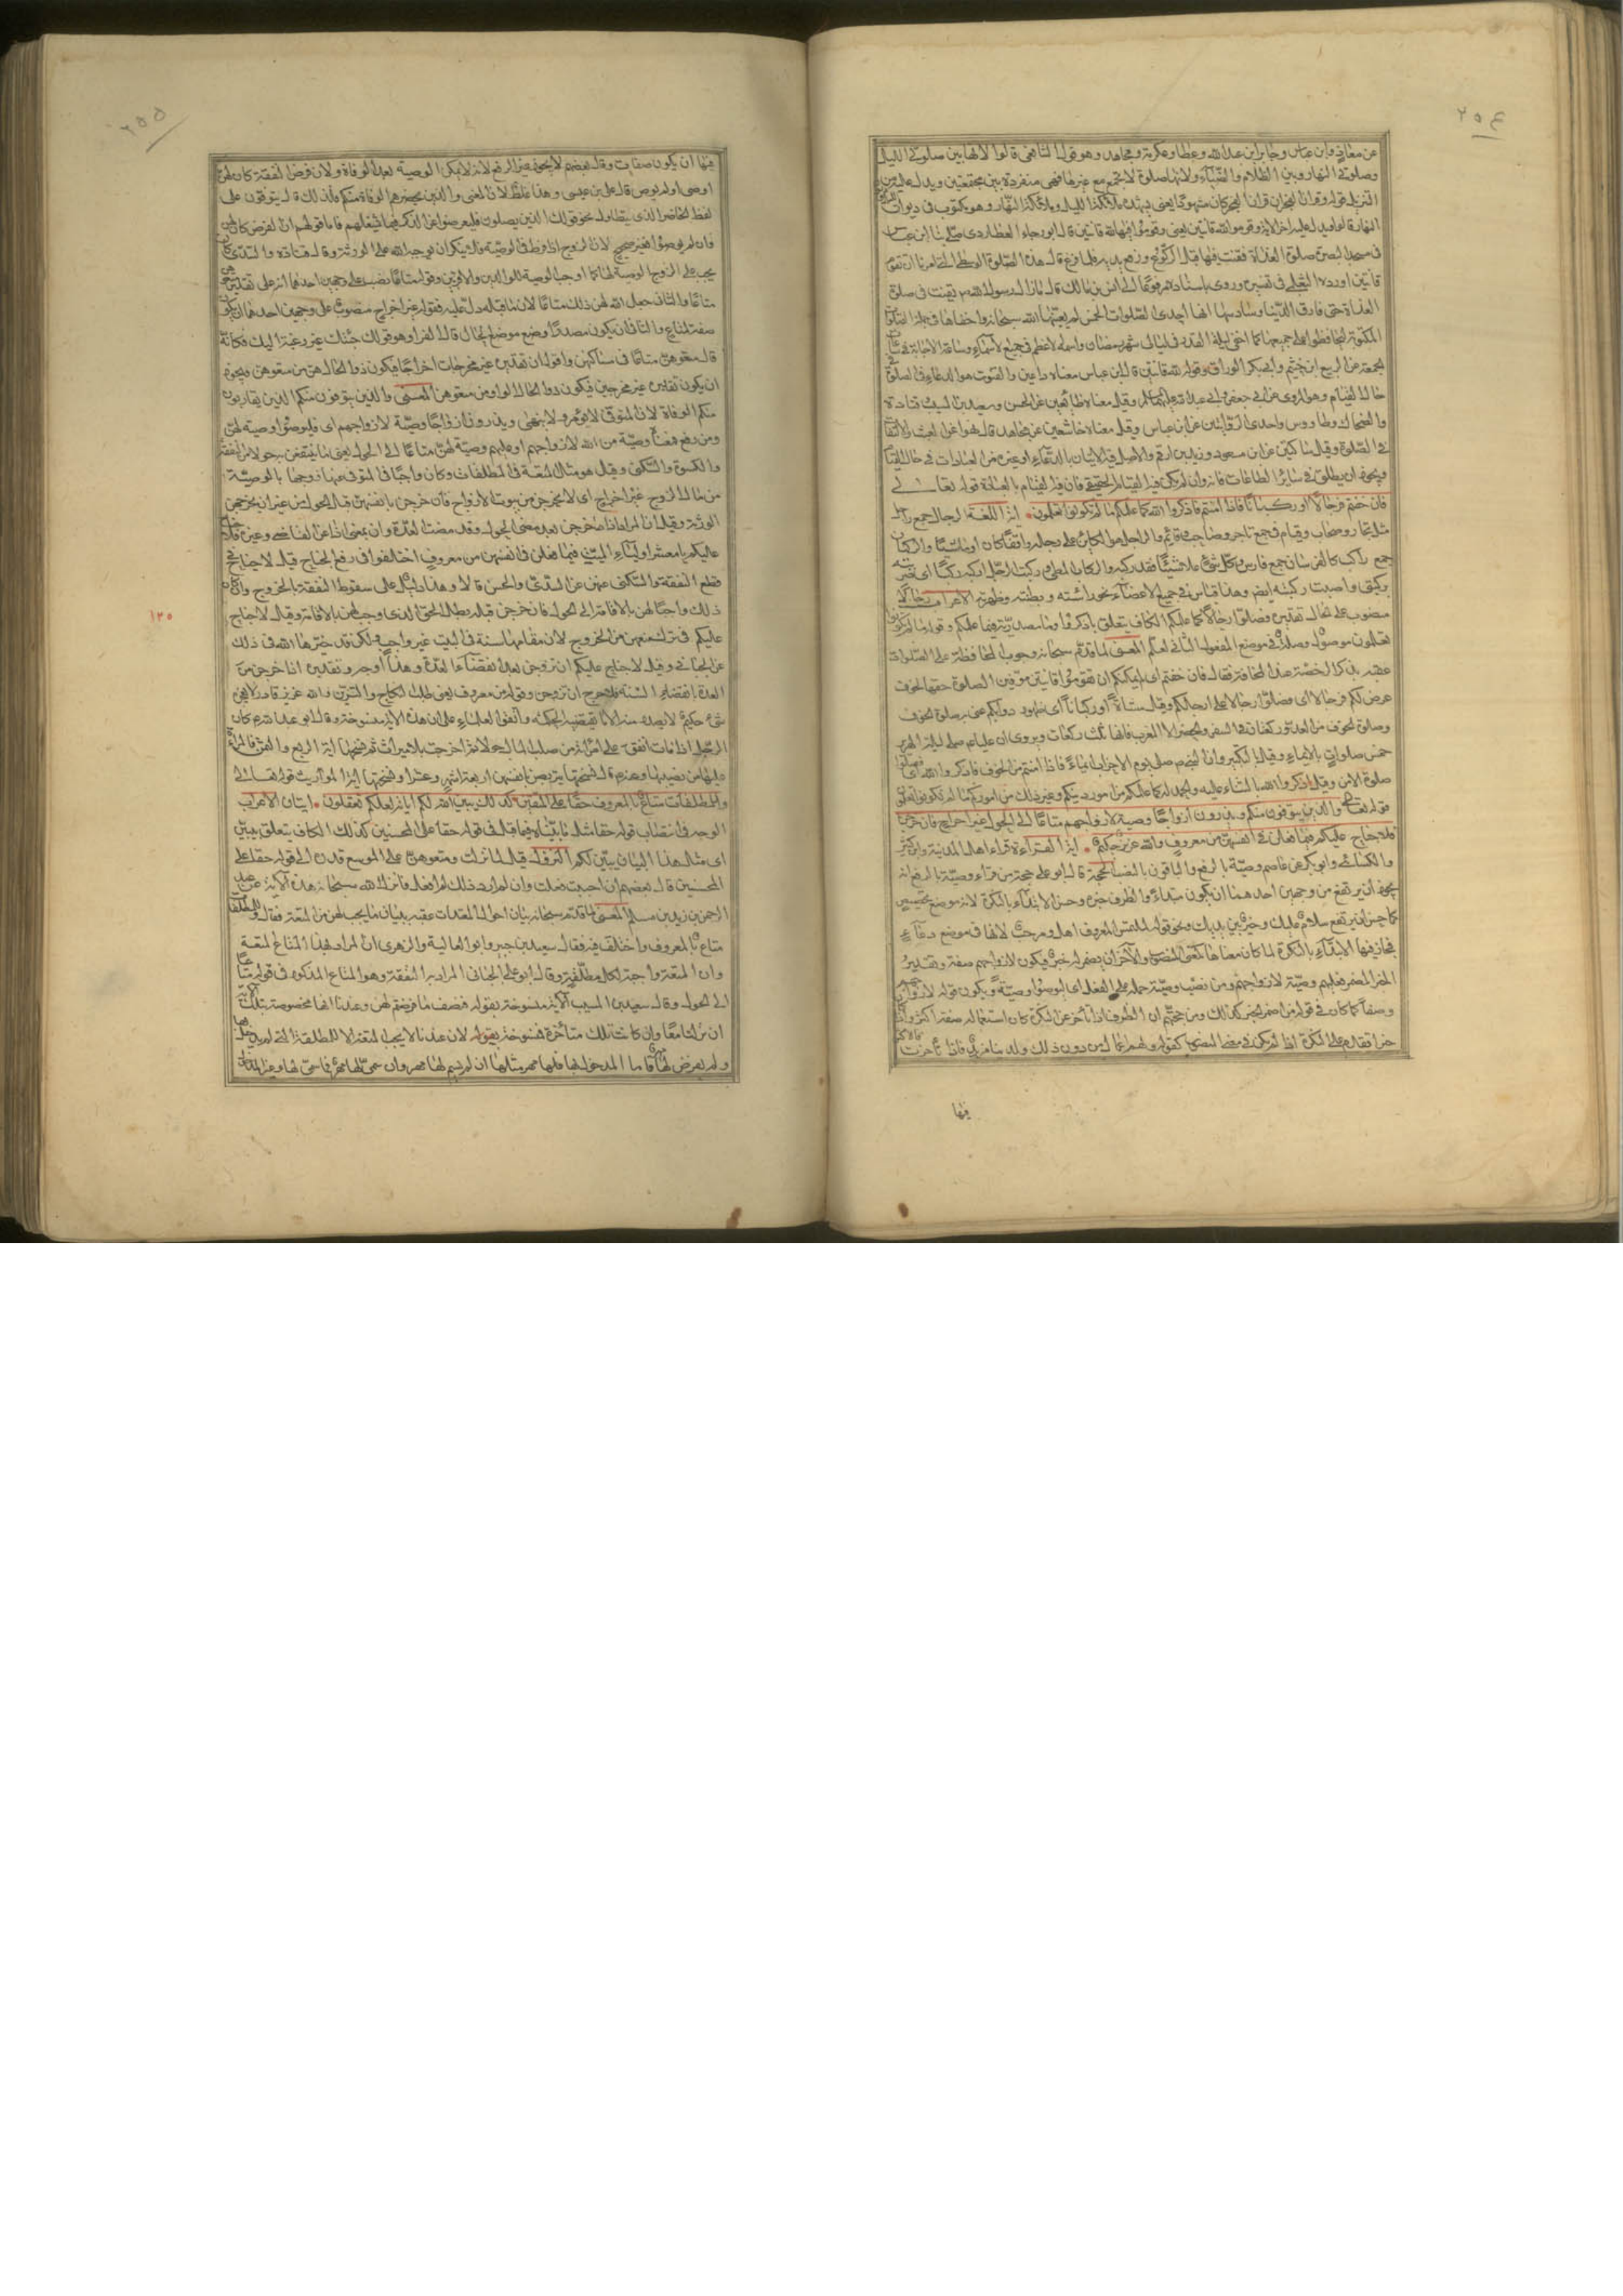 ٢٥٤
عن معاذ وابن عباس وجابر بن عبد الله وعطا وعكرمة ومجاهد وهو قول الشافعي قالوا لانها بين صلوتي الليل
وصلوتي النهار وبين الظلام والضياء ولانها صلوة لا تجمع مع غيرها فهي منفردة بين مجتمعتين ويدل عليه من
التنزيل قوله وقران الفجر ان قران الفجر كان مشهودا يعني يشهده ملائكة الليل وملائكة النهار وهو مكتوب في ديوان
النهار قالوا ويدل عليه اخر الاية وقوموا لله قانتين يعني وقوموا فيها لله قانتين قال ابو رجاء العطاردي صلى بنا ابن عباس
في مسجد البصرة صلوة الغداة فقنت فيها قبل الركوع ورفع يديه فلما فرغ قال هذه الصلوة الوسطى التي امرنا ان نقوم
قانتين اورده الثعلبي في تفسيره وروى باسناده مرفوعا الى انس بن مالك قال ما زال رسول الله يقنت في صلوة
الغداة حتى فارق الدنيا وسادسها انها احدى الصلوات الخمس لم يعينها الله سبحانه واخفاها في جملة الصلوات
المكتوبة ليحافظوا على جميعها كما اخفى ليلة القدر في ليالي شهر رمضان واسمه الاعظم في جميع الاسماء وساعة الاجابة في ساعات
الجمعة عن الربيع بن خيثم وابي بكر الوراق وقوله لله قانتين قال ابن عباس معناه داعين والقنوت هو الدعاء في الصلوة
حال القيام وهو المروي عن ابي جعفر وابي عبد الله عليهما السلم وقيل معناه طائعين عن الحسن وسعيد بن المسيب وقتادة
والضحاك وطاووس واحدى الروايتين عن ابن عباس وقيل معناه خاشعين عن مجاهد قال نهوا عن العبث والالتفات
في الصلوة وقيل ساكتين عن ابن مسعود وزيد بن ارقم والاصل فيه الاتيان بالدعاء او غيره من العبادات في حال القيام
ويجوز ان يطلق في سائر الطاعات فانه وان لم يكن فيه القيام الحقيقي فان فيه القيام بالعبادة قوله تعالى
فان خفتم فرجالا او ركبانا فاذا امنتم فاذكروا الله كما علمكم ما لم تكونوا تعلمون اية اللغة الرجال جمع راجل
مثل تجار وصحاب وقيام في جمع تاجر وصاحب وقائم والراجل هو الكائن على رجله واقفا كان او ماشيا والركبان
جمع راكب كالفرسان جمع فارس وكل شيء علا شيئا فقد ركبه والركاب المطي وركبت الرجل اركبه ركبا اي ضربته
بركبتي واصبت ركبته ايضا وهذا قياس في جميع الاعضاء نحو راسته وبطنته وظهرته الاعراب رجالا
منصوب على الحال تقديره فصلوا رجالا كما علمكم الكاف يتعلق باذكروا وما مصدرية فيما علمكم وقوله ما لم تكونوا
تعلمون موصول وصلة في موضع المفعول الثاني لعلم المعنى لما قدم سبحانه وجوب المحافظة على الصلوات
عقبه بذكر الرخصة عند المخافة فقال فان خفتم اي ان لم يمكنكم ان تقوموا قانتين موفين الصلوة حقها لخوف
عرض لكم فرجالا اي فصلوا رجالا على ارجلكم وقيل مشاة او ركبانا اي على ظهور دوابكم عنى به صلوة الخوف
وصلوة الخوف من العدو ركعتان في السفر والحضر الا المغرب فانها ثلث ركعات ويروى ان عليا صلى ليلة الهرير
خمس صلوات بالايماء وقيل بالتكبير وان النبي صلى يوم الاحزاب ايماء فاذا امنتم من الخوف فاذكروا الله اي فصلوا
صلوة الامن وقيل اذكروا الله بالثناء عليه والحمد له كما علمكم من امور دينكم وغير ذلك من اموركم ما لم تكونوا تعلمون
قوله تعالى والذين يتوفون منكم ويذرون ازواجا وصية لازواجهم متاعا الى الحول غير اخراج فان خرجن
فلا جناح عليكم فيما فعلن في انفسهن من معروف والله عزيز حكيم اية القراءة قراء اهل المدينة وابن كثير
والكسائي وابو بكر عن عاصم وصية بالرفع والباقون بالنصب الحجة قال ابو علي حجة من قراء وصية بالرفع انه
يجوز ان يرتفع من وجهين احدهما ان يكون مبتداء والظرف خبره وحسن الابتداء بالنكرة لانه موضع تخصيص
كما حسن ان يرتفع سلام عليك وخير بين يديك ونحو قوله لملتمس المعروف اهل ومرحب لانها في موضع دعاء
فجاز فيها الابتداء بالنكرة لما كان معناها كمعنى المنصوب والاخر ان يضمر له خبر فيكون لازواجهم صفة وتقدير
الخبر المضمر فعليهم وصية لازواجهم ومن نصب وصية حمله على الفعل اي ليوصوا وصية ويكون قوله لازواجهم
وصفا كما كان في قول من اضمر الخبر كذلك ومن حجتهم ان الظرف اذا تاخر عن النكرة كان استعماله صفة اكثر واذا كان
خبرا تقدم على النكرة اذا لم يكن في معنى المنصوب كقوله ولهم اعمال من دون ذلك ولدينا مزيد فاذا تاخرت
فيها
٢٥٥
فيها ان يكون صفات وقال بعضهم لا يجوز غير الرفع لانه لا يمكن الوصية بعد الوفاة ولان فرض النفقة كان لهن
اوصى او لم يوص قال علي بن عيسى وهذا غلط لان المعنى والذين يحضرهم الوفاة منكم فلذلك قال يتوفون على
لفظ الحاضر الذي يتطاول نحو قولك الذين يصلون فليعرضوا عن الذكر فيما يشغلهم فاما قولهم ان الفرض كان لهن
وان لم يوصوا فغير صحيح لان الزوج اذا فرط في الوصية فلا ينكر ان يوجبه الله على الورثة وقال قتادة والسدي كان
يجب على الزوج الوصية لها كما اوجب الوصية للوالدين والاقربين وقوله متاعا نصب على وجهين احدهما انه على تقدير متعوهن
متاعا والثاني جعل الله لهن ذلك متاعا لان ما قبله دل عليه فقوله غير اخراج منصوب على وجهين احدهما ان يكون
صفة لمتاع والثاني ان يكون مصدرا وضع موضع الحال قال الفراء وهو قولك جئتك غير رغبة اليك فكانه
قال متعوهن متاعا في مساكنهن واقول ان تقديره غير مخرجات اخراجا فيكون ذو الحال هن من متعوهن ويجوز
ان يكون تقديره غير مخرجين فيكون ذو الحال الواو من متعوهن المعنى والذين يتوفون منكم الذين يقاربون
منكم الوفاة لان المتوفى لا يؤمر ولا ينهى ويذرون ازواجا وصية لازواجهم اي فليوصوا وصية لهن
ومن رفع فمعناه وصية من الله لازواجهم او عليهم وصية لهن متاعا الى الحول يعني ما ينتفعن به حولا من النفقة
والكسوة والسكنى وقيل هو مثل المتعة في المطلقات وكان واجبا في المتوفى عنها زوجها بالوصية
من مال الزوج غير اخراج اي لا يخرجن من بيوت الازواج فان خرجن بانفسهن قبل الحول من غير ان يخرجهن
الورثة وقيل ان المراد اذا خرجن بعد مضي الحول وقد مضت العدة وان بمعنى اذا عن القاضي وغيره فلا جناح
عليكم يا معشر اولياء الميت فيما فعلن في انفسهن من معروف اختلفوا في رفع الجناح قيل لا جناح في
قطع النفقة والسكنى عنهن عن السدي والحسن قالا وهذا دليل على سقوط النفقة بالخروج وان كان
١٢٥
ذلك واجبا لهن بالاقامة الى الحول فان خرجن قبله بطل الحق الذي وجب لهن بالاقامة وقيل لا جناح
عليكم في ترك منعهن من الخروج لان مقامها سنة في البيت غير واجب ولكن قد خيرها الله في ذلك
عن الجبائي وقيل لا جناح عليكم ان تزوجن بعد انقضاء العدة وهذا اوجه وتقديره اذا خرجن من
العدة بانقضاء السنة فلا حرج ان تزوجن وقوله من معروف يعني طلب النكاح والتزين والله عزيز قادر لا يعجزه
شيء حكيم لا يصدر منه الا ما تقتضيه الحكمة واتفق العلماء على ان هذه الاية منسوخة وقال ابو عبد الله كان
الرجل اذا مات انفق على امراته من صلب المال الحول ثم اخرجت بلا ميراث ثم نسختها اية الربع والثمن فالمراة
ينفق عليها من نصيبها وعنه قال نسختها يتربصن بانفسهن اربعة اشهر وعشرا ونسختها اية المواريث قوله تعالى
وللمطلقات متاع بالمعروف حقا على المتقين كذلك يبين الله لكم اياته لعلكم تعقلون ايتان الاعراب
الوجه في انتصاب قوله حقا مثل ما بيناه فيما قبل في قوله حقا على المحسنين كذلك الكاف يتعلق بيبين
اي مثل هذا البيان يبين لكم النزول قيل لما نزلت ومتعوهن على الموسع قدره الى قوله حقا على
المحسنين قال بعضهم ان احببت فعلت وان لم ارد ذلك لم افعل فانزل الله سبحانه هذه الاية عن عبد
الرحمن بن زيد بن اسلم المعنى لما قدم سبحانه بيان احوال المعتدات عقبه ببيان ما يجب لهن من المتعة فقال وللمطلقات
متاع بالمعروف واختلف فيه فقال سعيد بن جبير وابو العالية والزهري ان المراد بهذا المتاع المتعة
وان المتعة واجبة لكل مطلقة وقال ابو علي الجبائي المراد به النفقة وهو المتاع المذكور في قوله متاعا
الى الحول وقال سعيد بن المسيب الاية منسوخة بقوله فنصف ما فرضتم لهن وعندنا انها مخصوصة بتلك الاية
ان نزلتا معا وان كانت تلك متاخرة فمنسوخة بقوله لان عندنا لا يجب المتعة الا للمطلقة التي لم يدخل بها
ولم يفرض لها فاما المدخول بها فلها مهر مثلها ان لم يسم لها مهر وان سمي لها مهر فما سمي لها وغير المدخول